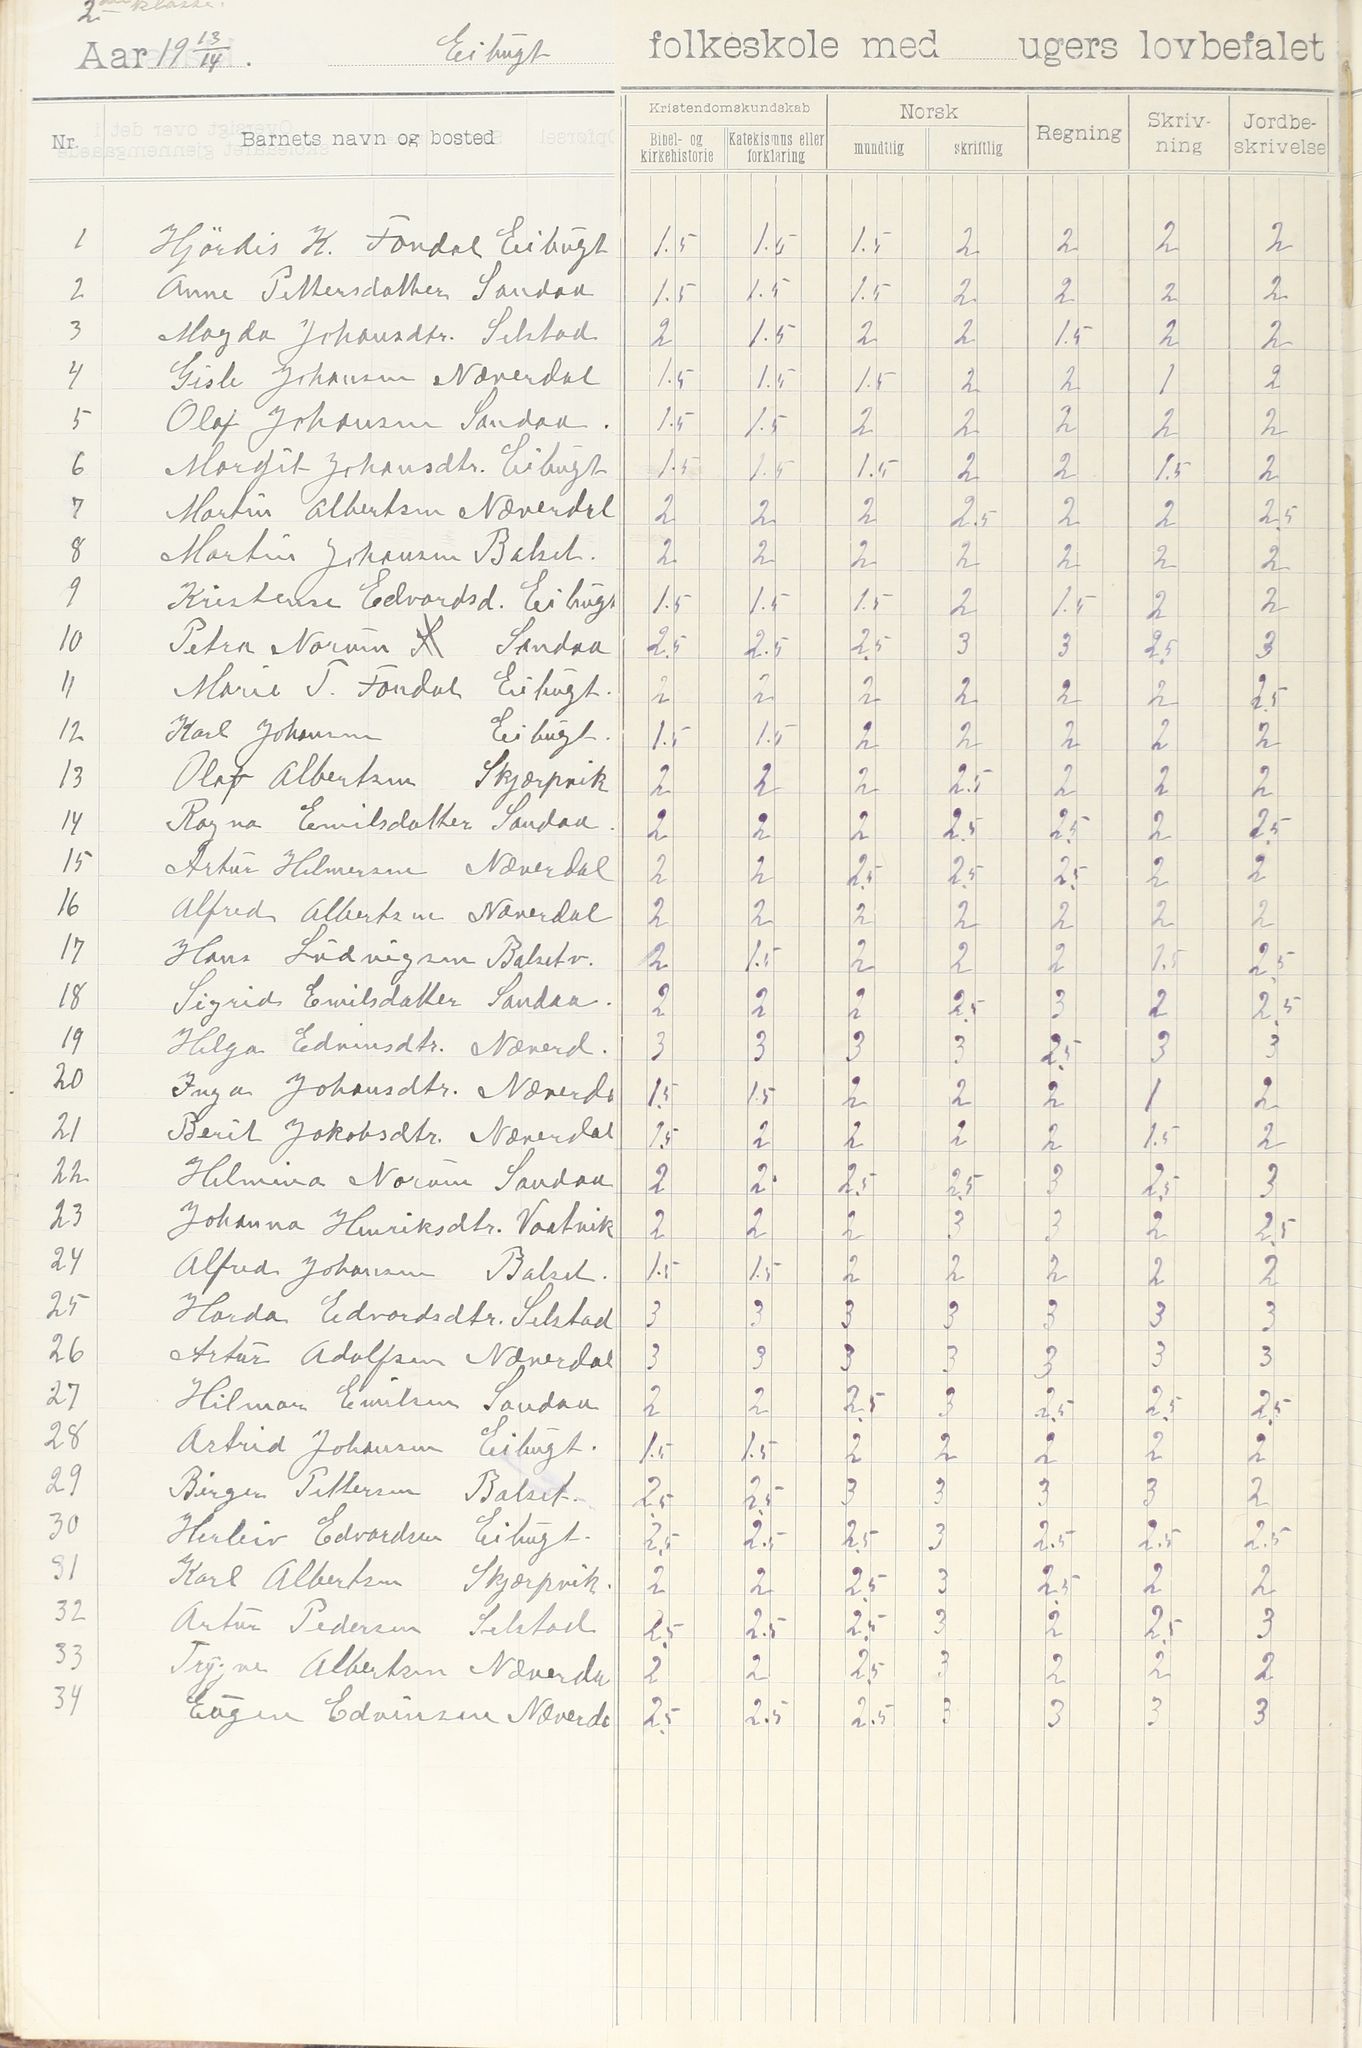 2den klasse.
Aar 19 13/14. Eibugt folkeskole med ugers lovbefalet
Nr. Barnets navn og bosted Kristendomskundskab Norsk Regning Skriv-ning Jordbe-skrivelse
Bibel- og kirkehistorie Katekismus eller forklaring mundtlig skriftlig
1 Hjördis K. Fondal Eibugt 1.5 1.5 1.5 2 2 2 2
2 Anne Pettersdatter Sandaa 1.5 1.5 1.5 2 2 2 2
3 Magda Johansdtr. Selstad 2 1.5 2 2 1.5 2 2
4 Gisle Johansen Næverdal 1.5 1.5 1.5 2 2 1 2
5 Olaf Johansen Sandaa. 1.5 1.5 2 2 2 2 2
6 Margit Johansdtr. Eibugt 1.5 1.5 1.5 2 2 1.5 2
7 Martin Albertsen Næverdal 2 2 2 2.5 2 2 2.5
8 Martin Johansen Balset. 2 2 2 2 2 2 2
9 Kristense Edvardsd. Eibugt 1.5 1.5 1.5 2 1.5 2 2
10 Petra Norum Sandaa 2.5 2.5 2.5 3 3 2.5 3
11 Marie T. Fondal Eibugt. 2 2 2 2 2 2 2.5
12 Karl Johansen Eibugt. 1.5 1.5 2 2 2 2 2
13 Olaf Albertsen Skjærpvik 2 2 2 2.5 2 2 2
14 Ragna Emilsdatter Sandaa. 2 2 2 2.5 2.5 2 2.5
15 Artur Hilmersen Næverdal 2 2 2.5 2.5 2.5 2 2
16 Alfred Albertsen Næverdal 2 2 2 2 2 2 2
17 Hans Ludvigsen Balsetv. 2 1.5 2 2 2 1.5 2.5
18 Sigrid Emilsdatter Sandaa. 2 2 2 2.5 3 2 2.5
19 Helga Edvinsdtr. Næverd. 3 3 3 3 2.5 3 3
20 Inga Johansdtr. Næverda 1.5 1.5 2 2 2 1 2
21 Berit Jakobsdtr. Næverdal 1.5 2 2 2 2 1.5 2
22 Hilmina Norum Sandaa 2 2. 2.5 2.5 3 2.5 3
23 Johanna Henriksdtr. Vaatvik 2 2 2 3 3 2 2.5
24 Alfred Johansen Balset. 1.5 1.5 2 2 2 2 2
25 Harda Edvardsdtr. Selstad 3 3 3 3 3 3 3
26 Artur Adolfsen Næverdal 3 3 3 3 3 3 3
27 Hilmar Emilsen Sandaa 2 2 2.5 3 2.5 2.5 2.5
28 Astrid Johansen Eibugt. 1.5 1.5 2 2 2 2 2
29 Birger Pettersen Balset. 2.5 2.5 3 3 3 3 2
30 Herleiv Edvardsen Eibugt. 2.5 2.5 2.5 3 2.5 2.5 2.5
31 Karl Albertsen Skjærpvik. 2 2 2.5 3 2.5 2 2
32 Artur Pedersen Selstad 2.5 2.5 2.5 3 2 2.5 3
33 Trygve Albertsen Næverda 2 2 2.5 3 2 2 2
34 Eugen Edvinsen Næverda 2.5 2.5 2.5 3 3 3 3